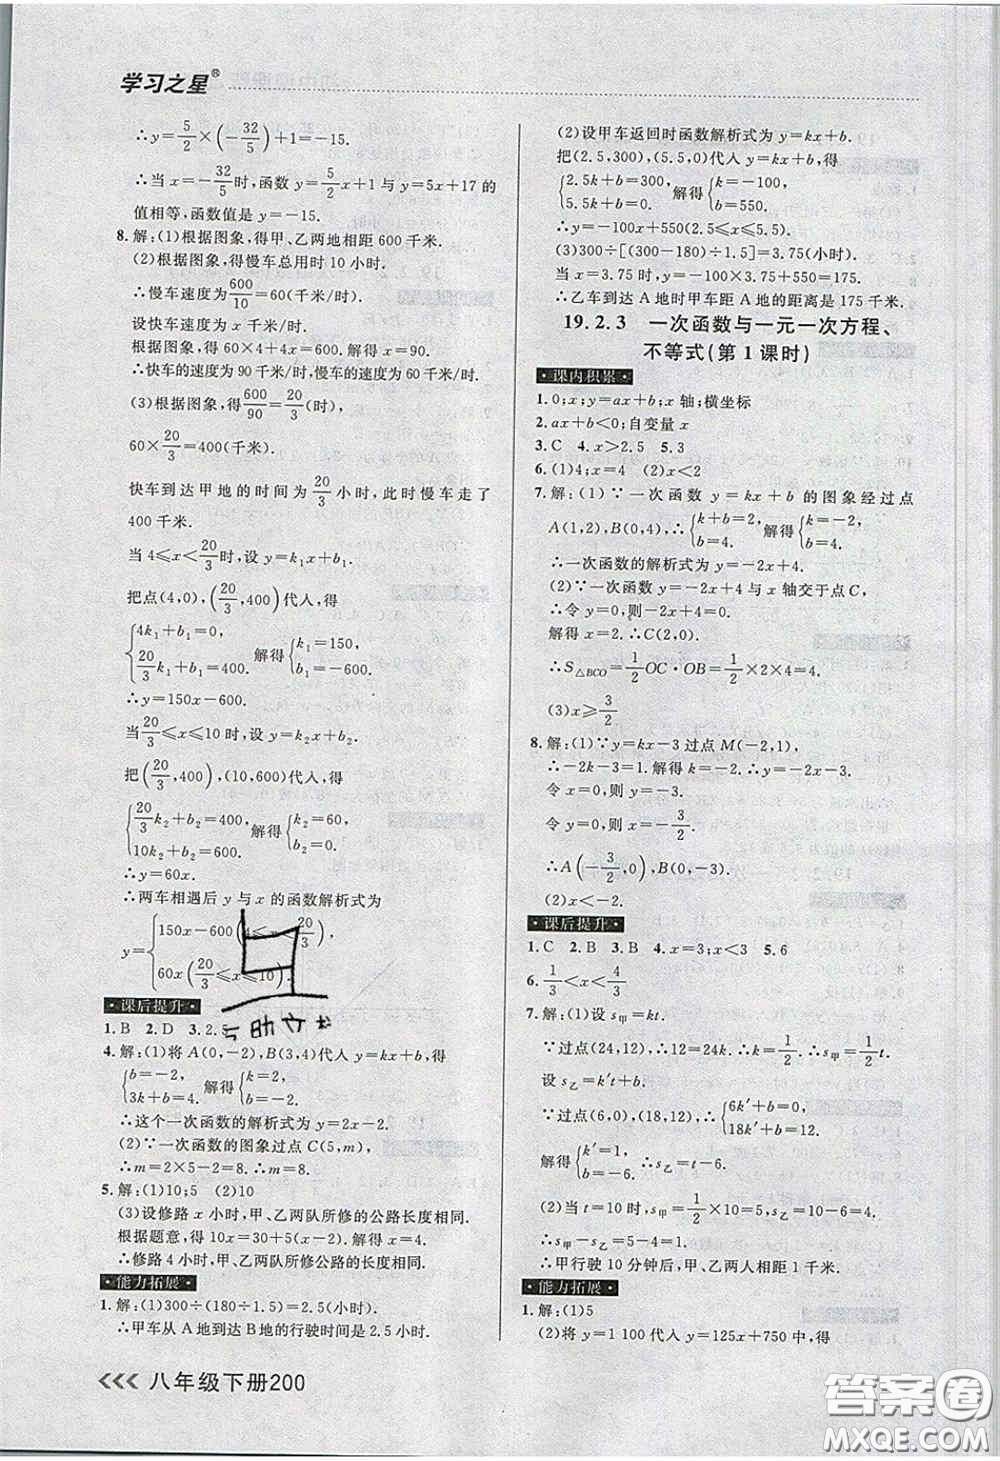 学习之星®
∴y=5/2×(−32/5)+1=−15.
∴当 x=−32/5时,函数 y=5/2x+1 与 y=5x+17 的
值相等,函数值是 y=−15.
8.解:(1)根据图象,得甲、乙两地相距 600 千米.
(2)根据图象,得慢车总用时 10 小时.
∴慢车速度为600/10=60(千米/时).
设快车速度为 x 千米/时.
根据图象,得 60×4+4x=600.解得 x=90.
∴快车的速度为 90 千米/时,慢车的速度为 60 千米/时.
(3)根据图象,得600/90=20/3(时),
60×20/3=400(千米).
快车到达甲地的时间为20/3小时,此时慢车走了
400 千米.
当 4⩽x<20/3时,设 y=k₁x+b₁.
把点(4,0),(20/3,400)代人,得
{4k₁+b₁=0, 20/3k₁+b₁=400. 解得{k₁=150, b₁=−600.
∴y=150x−600.
当20/3⩽x⩽10 时,设 y=k₂x+b₂.
把(20/3,400),(10,600)代人,得
{20/3k₂+b₂=400, 10k₂+b₂=600. 解得{k₂=60, b₂=0.
∴y=60x.
∴两车相遇后 y 与 x 的函数解析式为
y={150x−600(4⩽x<20/3), 60x(20/3⩽x⩽10).
课后提升
1.B 2.D 3.2.5
4.解:(1)将 A(0,−2),B(3,4)代人 y=kx+b,得
{b=−2, 3k+b=4. 解得{k=2, b=−2.
∴这个一次函数的解析式为 y=2x−2.
(2)∵一次函数的图象过点 C(5,m),
∴m=2×5−2=8.∴m=8.
5.解:(1)10;5 (2)10
(3)设修路 x 小时,甲、乙两队所修的公路长度相同.
根据题意,得 10x=30+5(x−2).解得 x=4.
∴修路 4 小时,甲、乙两队所修公路的长度相同.
能力拓展
1.解:(1)300÷(180÷1.5)=2.5(小时).
∴甲车从 A 地到达 B 地的行驶时间是 2.5 小时.
八年级下册200
(2)设甲车返回时函数解析式为 y=kx+b.
把(2.5,300),(5.5,0)代人 y=kx+b,得
{2.5k+b=300, 5.5k+b=0. 解得{k=−100, b=550.
∴y=−100x+550(2.5⩽x⩽5.5).
(3)300÷[(300−180)÷1.5]=3.75(小时).
当 x=3.75 时,y=−100x+550=175.
∴乙车到达 A 地时甲车距 A 地的距离是 175 千米.
19.2.3 一次函数与一元一次方程、
不等式(第 1 课时)
课内积累
1.0;x;y=ax+b;x 轴;横坐标
2.ax+b<0;自变量 x
3.C 4.x>2.5 5.3
6.(1)4;x=4 (2)x<2
7.解:(1)∵一次函数 y=kx+b 的图象经过点
A(1,2),B(0,4),∴{k+b=2, b=4. 解得{k=−2, b=4.
∴一次函数的解析式为 y=−2x+4.
(2)∵一次函数 y=−2x+4 与 x 轴交于点 C,
∴令 y=0,则−2x+4=0.
解得 x=2.∴C(2,0).
∴S△BCO=1/2OC·OB=1/2×2×4=4.
(3)x⩾3/2
8.解:(1)∵y=kx−3 过点 M(−2,1),
∴−2k−3=1.解得 k=−2.∴y=−2x−3.
令 x=0,则 y=−3.
令 y=0,则 x=−3/2.
∴A(−3/2,0),B(0,−3).
(2)x<−2.
课后提升
1.C 2.B 3.B 4.x=3;x<3 5.6
6.1/3<x<4/3
7.解:(1)设 s甲=kt.
∵过点(24,12),∴12=24k.∴k=1/2.∴s甲=1/2t.
设 s乙=k′t+b.
∵过点(6,0),(18,12),∴{6k′+b=0, 18k′+b=12.
解得{k′=1, b=−6. ∴s乙=t−6.
(2)当 t=10 时,s甲=1/2×10=5,s乙=10−6=4.
∴s甲−s乙=5−4=1.
∴甲行驶 10 分钟后,甲、乙两人相距 1 千米.
能力拓展
1.解:(1)5
(2)将 y=1 100代入 y=125x+750 中,得
答案卷
MXQE.COM